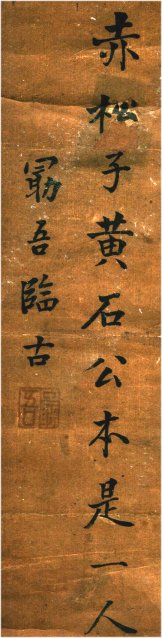 赤松子黄石公本是一人
勗吾臨古